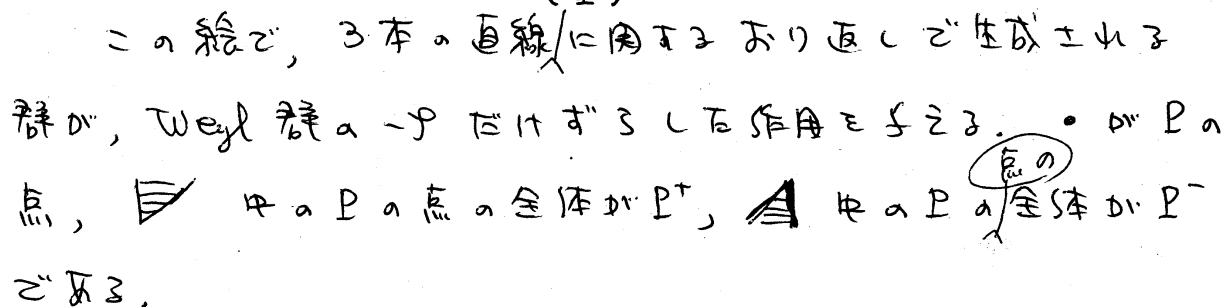 この絵で, 3本の直線に関するおり返しで生成される
群が, Weyl 群の -ρ だけずらした作用を与える. • が P の
点, 中の P の点の全体が P⁺, 中の P の点の全体が P⁻
である.